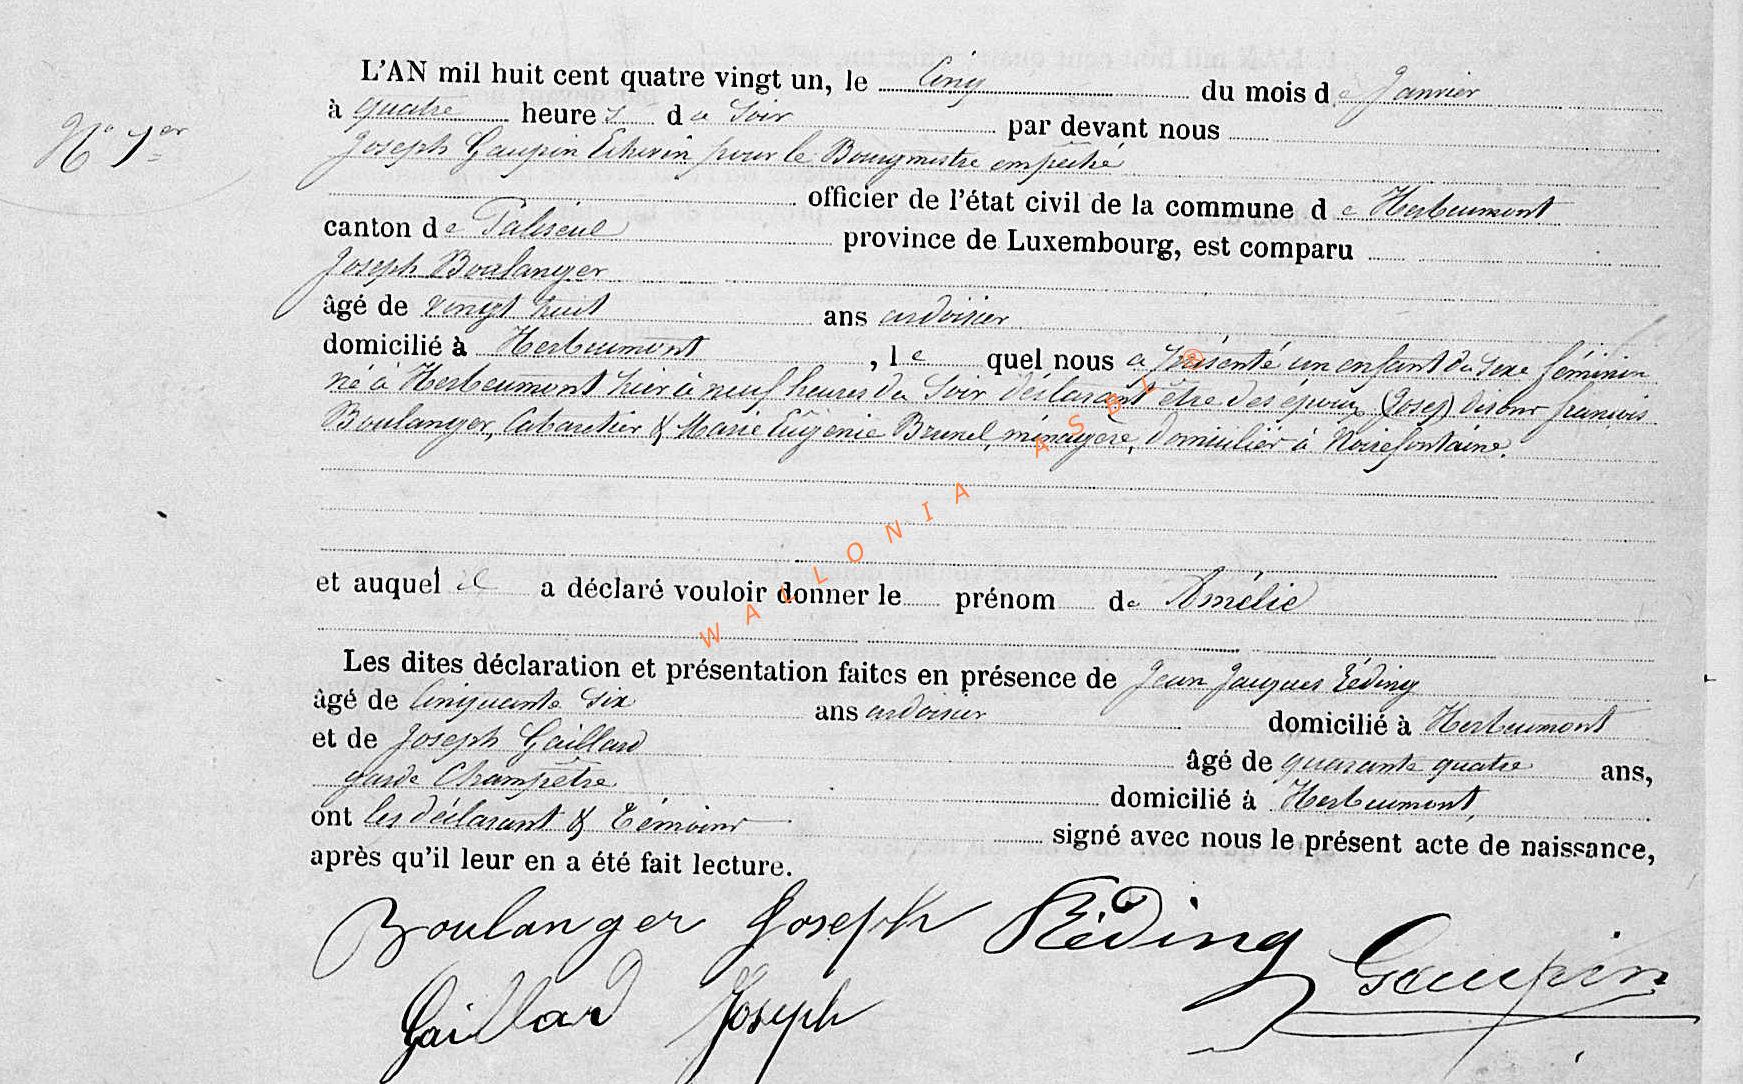 L'AN mil huit cent quatre vingt un, le Cinq du mois de Janvier
No 1er
à quatre heures du Soir par devant nous
Joseph Gaupin Echevin pour le Bourgmestre empêché
officier de l'état civil de la commune de Herbeumont
canton de Paliseul province de Luxembourg, est comparu
Joseph Boulanger
âgé de vingt huit ans ardoisier
domicilié à Herbeumont, lequel nous a présenté un enfant du sexe féminin
né à Herbeumont hier à neuf heures du Soir déclarant être des époux (Josep) françois
Boulanger, Cabaretier & Marie Eugénie Brunel, ménagère, domiciliés à Noirefontaine.
et auquel il a déclaré vouloir donner le prénom de Amélie
Les dites déclaration et présentation faites en présence de Jean Jacques Réding
âgé de Cinquante six ans ardoisier domicilié à Herbeumont
et de Joseph Gaillard âgé de quarante quatre ans,
garde Champêtre domicilié à Herbeumont,
ont les déclarant & Témoins signé avec nous le présent acte de naissance,
après qu'il leur en a été fait lecture.
Boulanger Joseph Réding
Gaupin
Gaillard Joseph
WALLONIA ASBL ®